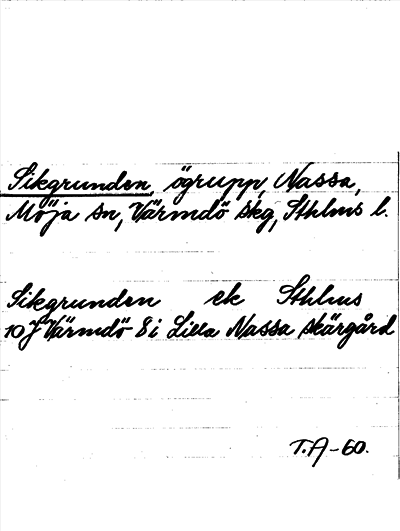 Sikgrunden, ögrupp, Nassa,
Möja sn, Värmdö skg, Sthlms l.
Sikgrunden ek Sthlms
10 J Värmdö 8 i Lilla Nassa skärgård
T.A-60.